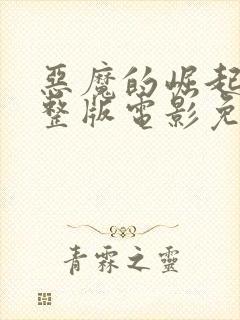 惡魔的崛起
整版電影免
青霖之靈